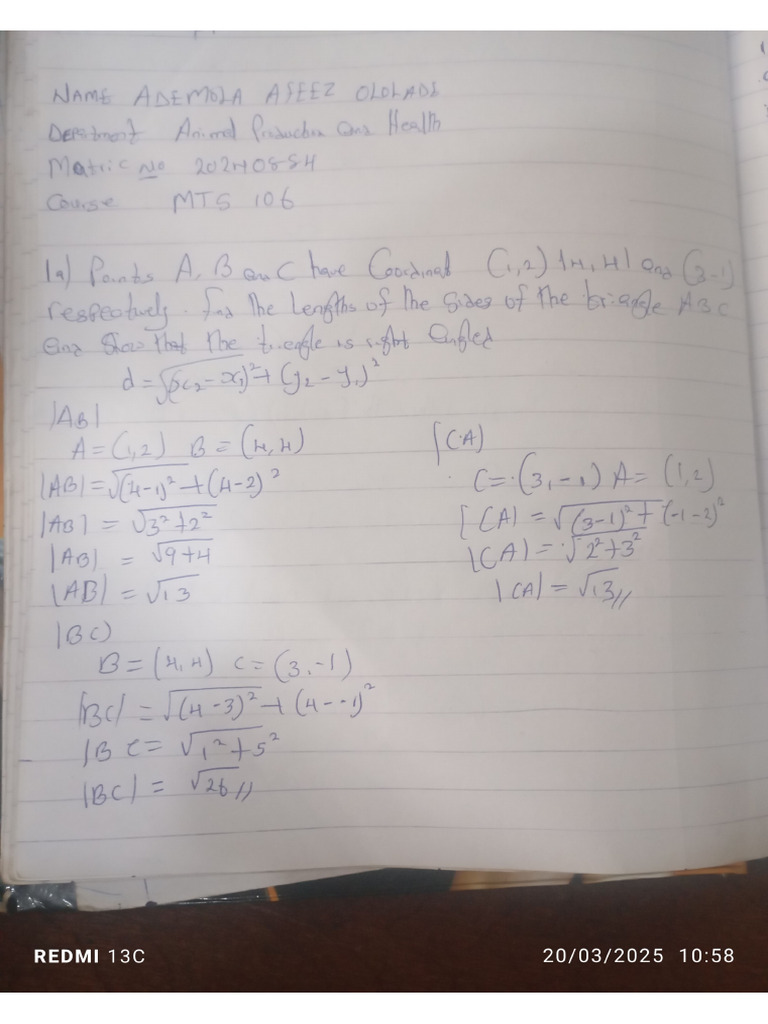 NAME ADEMOLA AFEEZ OLOLADE
Department Animal Production and Health
Matric No
Course MTS 106
1a) Points A, B and C have Coordinat (1,2) (4,4) and (3-1)
respectively. find the Lengths of the sides of the triangle ABC
and show that the triangle is right angled
d = √(x₂ - x₁)² + (y₂ - y₁)²
|AB|
A = (1,2) B = (4,4)
|AB| = √(4-1)² + (4-2)²
|AB| = √3²+2²
|AB| = √9+4
|AB| = √13
|BC)
B = (4,4) C = (3,-1)
|BC| = √(4-3)² + (4--1)²
|BC = √1²+5²
|BC| = √26//
[CA)
C = (3,-1) A = (1,2)
[CA) = √(3-1)² + (-1-2)²
|CA) = √2²+3²
|CA) = √13//
REDMI 13C
20/03/2025 10:58